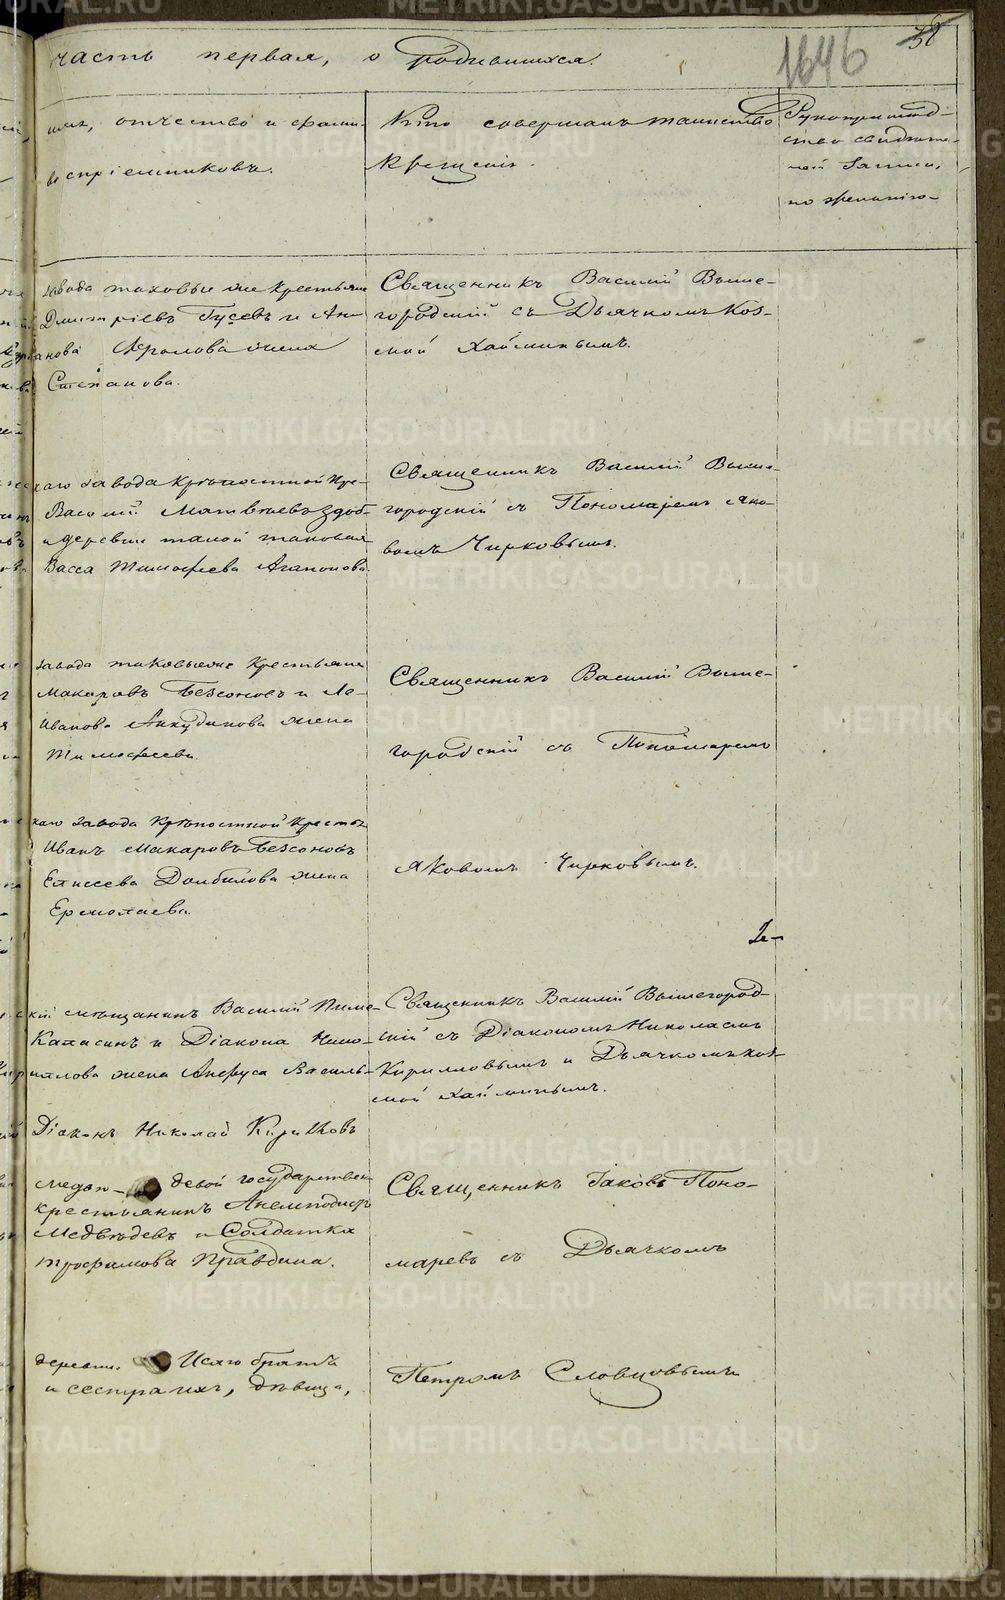 часть первая, о родившихся.
1646
38
имя, отчество и фами-
воспріемниковъ.
Кто совершалъ таинство
крещенія.
Рукоприклад-
ство свидѣте-
лей записи,
по желанію
завода таковые же крестьяне
Дмитріевъ Гусевъ и Ан-
Фролова жена
Степанова.
Священникъ Василій Выше-
городскій съ Дьячкомъ Коз-
мой Хайминымъ.
каго завода крѣпостной кре-
Василій Матвѣевъ Здоб-
и деревни такой таковая
Васса Тимофеева Агапонова
Священникъ Василій Выше-
городскій съ Пономаремъ Яко-
вомъ Чирковымъ.
завода таковые же крестьяне
Макаровъ Безсоновъ и Ле-
Иванова Анкудинова жена
Тимофеева.
Священникъ Василій Выше-
городскій съ Пономаремъ
каго завода крѣпостной кресть-
Иванъ Макаровъ Безсоновъ
Елисеева Долбилова жена
Ермолаева.
Яковомъ Чирковымъ.
кій мѣщанинъ Василій Пиме-
Капасинъ и Діакона Нико-
Кириллова жена Анфуса Василь-
Священникъ Василій Вышегород-
скій съ Діакономъ Николаемъ
Кирилловымъ и Дьячкомъ Коз-
мой Хайминымъ.
Діаконъ Николай Кирилловъ
девой государствен
крестьянинъ Анемподистъ
Медвѣдевъ и Солдатка
Трофимова Правдина.
Священникъ Іаковъ Поно-
маревъ съ Дьячкомъ
деревни. Исаю братъ
и сестра ихъ, дѣвица,
Петромъ Словцовымъ
METRIKI.GASO-URAL.RU